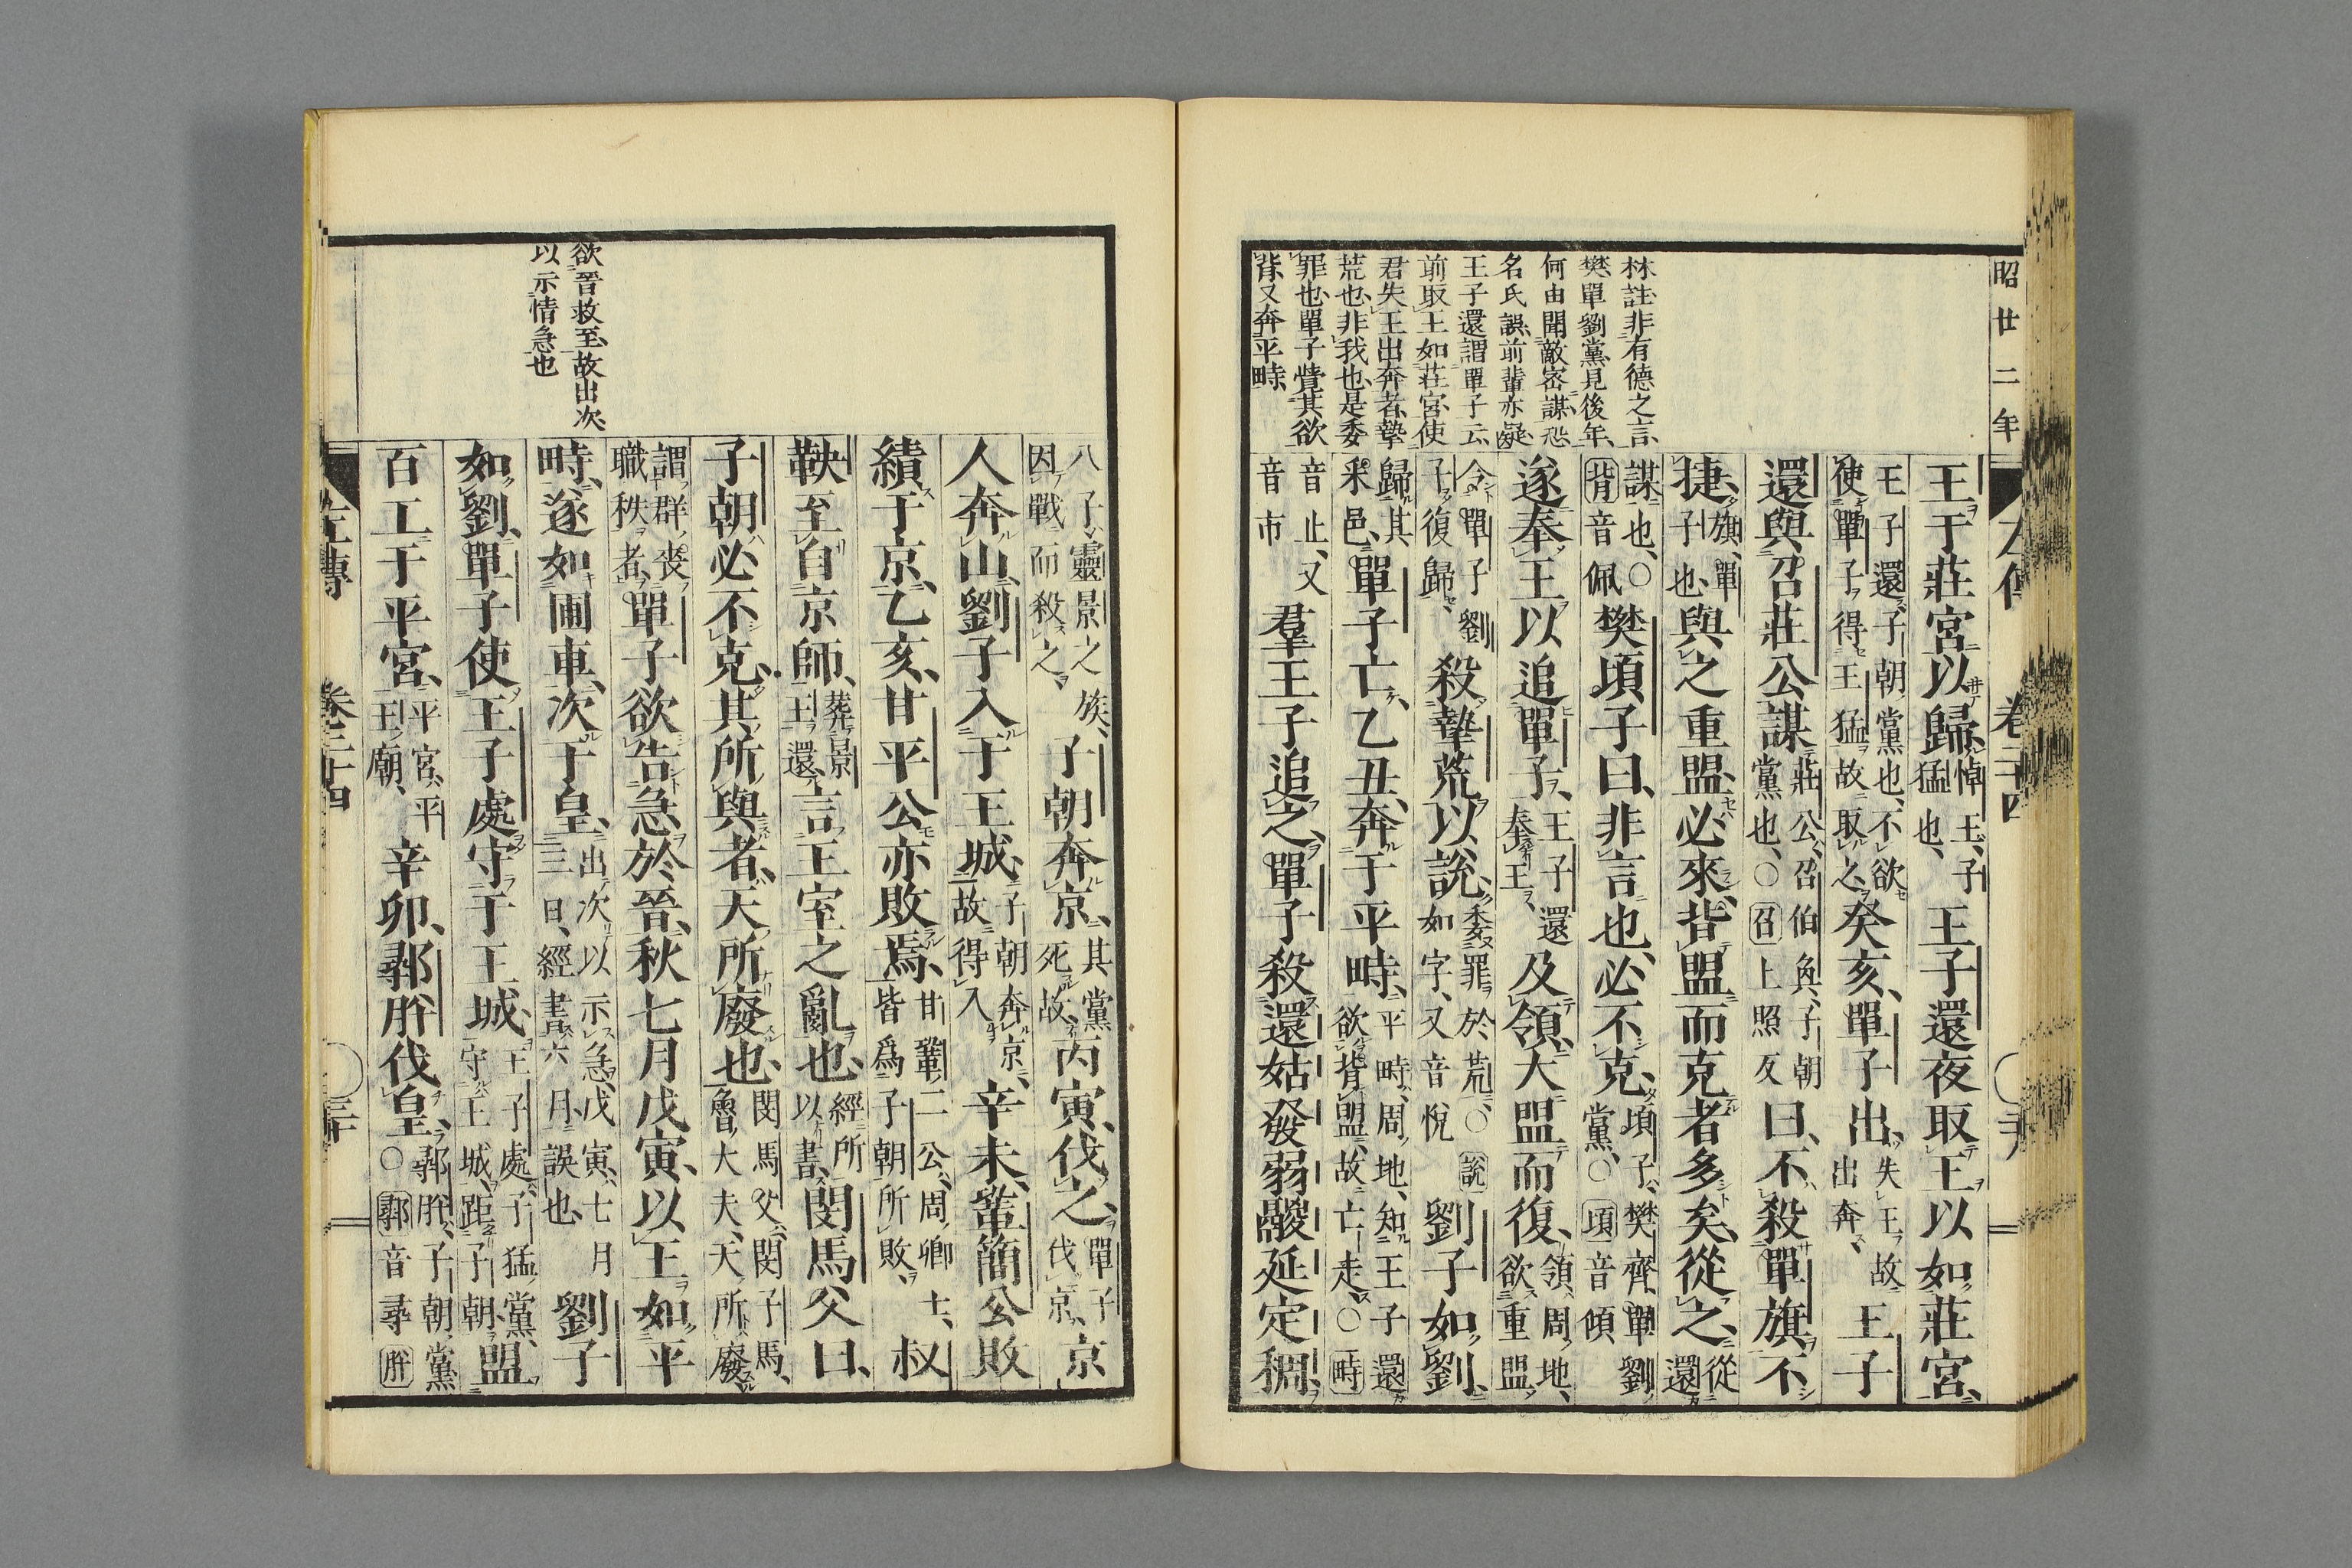 昭廿二年
左傳 卷二十四
林註非有德之言
樊單劉黨見後年
何由聞敵密謀恐
名氏誤前輩亦疑
王子還謂單子云
前取王如莊宮使
君失王出奔者摯
荒也非我也是委
罪也單子覺其欲
背又奔平畤
王于莊宮以歸、悼王、子猛也、王子還夜取王以如莊宮、
王子還、子朝黨也、不欲使單子得王猛、故取之、癸亥、單子出、失王、故出奔、王子
還與召莊公謀、莊公、召伯奐、子朝黨也、○召上照反曰、不殺單旗、不
捷、旗、單子也、與之重盟、必來、背盟而克者多矣、從之、從還
謀也、○背音佩樊頃子曰、非言也、必不克、頃子、樊齊、單劉黨、○頃音傾
遂奉王以追單子、王子還奉王、及領、大盟而復、領、周地、欲重盟、
令單子劉子復歸、殺摯荒以說、委罪於荒、○說如字、又音悅劉子如劉、
歸其采邑、單子亡、乙丑、奔于平畤、平畤、周地、知王子還欲背盟、故亡走、○畤
音止、又音市羣王子追之、單子殺還姑發弱鬷延定稠、
欲晉救至故出次
以示情急也
八子、靈景之族、因戰而殺之、子朝奔京、其黨死故、丙寅、伐之、單子伐京、京
人奔山、劉子入于王城、子朝奔京、故得入、辛未、鞏簡公敗
績于京、乙亥、甘平公亦敗焉、甘鞏二公、周卿士、皆爲子朝所敗、叔
鞅至自京師、葬景王還、言王室之亂也、經所以書、閔馬父曰、
子朝必不克、其所與者、天所廢也、閔馬父、閔子馬、魯大夫、天所廢、
謂群喪職秩者、單子欲告急於晉、秋七月戊寅、以王如平
畤、遂如圃車、次于皇、出次以示急、戊寅、七月三日、經書六月、誤也、劉子
如劉、單子使王子處守于王城、王子處、子猛黨、守王城、距子朝、盟
百工于平宮、平宮、平王廟、辛卯、鄩肸伐皇、鄩肸、子朝黨○鄩音尋肸
左傳 卷二十四 三十